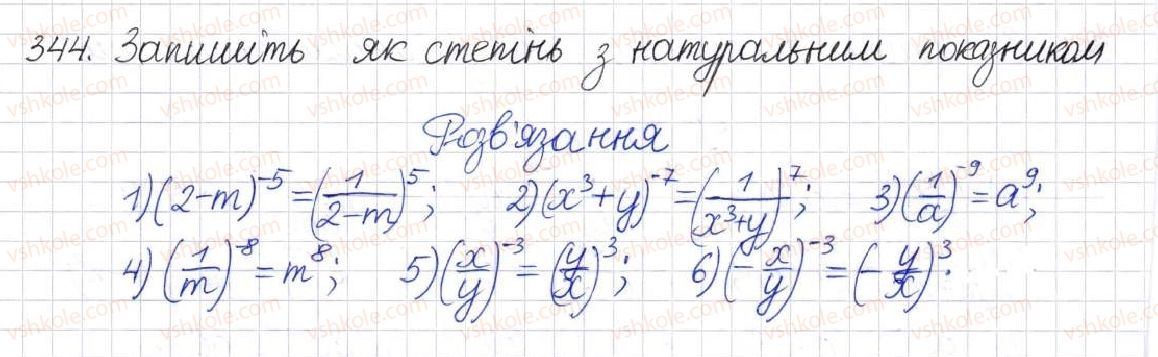 344. Запишіть як степінь з натуральним показником
Розв'язання
1) (2-m)^{-5} = (1/(2-m))^5; 2) (x^3+y)^{-7} = (1/(x^3+y))^7; 3) (1/a)^{-9} = a^9;
4) (1/m)^{-8} = m^8; 5) (x/y)^{-3} = (y/x)^3; 6) (-x/y)^{-3} = (-y/x)^3.
vshkole.com